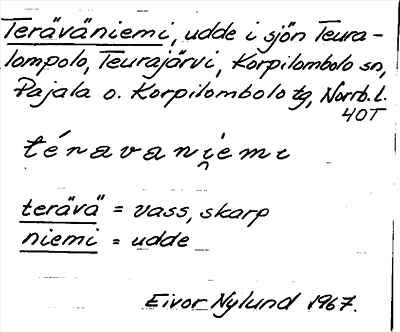 Teräväniemi, udde i sjön Teura-
lompolo, Teurajärvi, Korpilombolo sn,
Pajala o. Korpilombolo tg, Norrb. l.
40T
térnavanịemı
terävä = vass, skarp
niemi = udde
Eivor Nylund 1967.